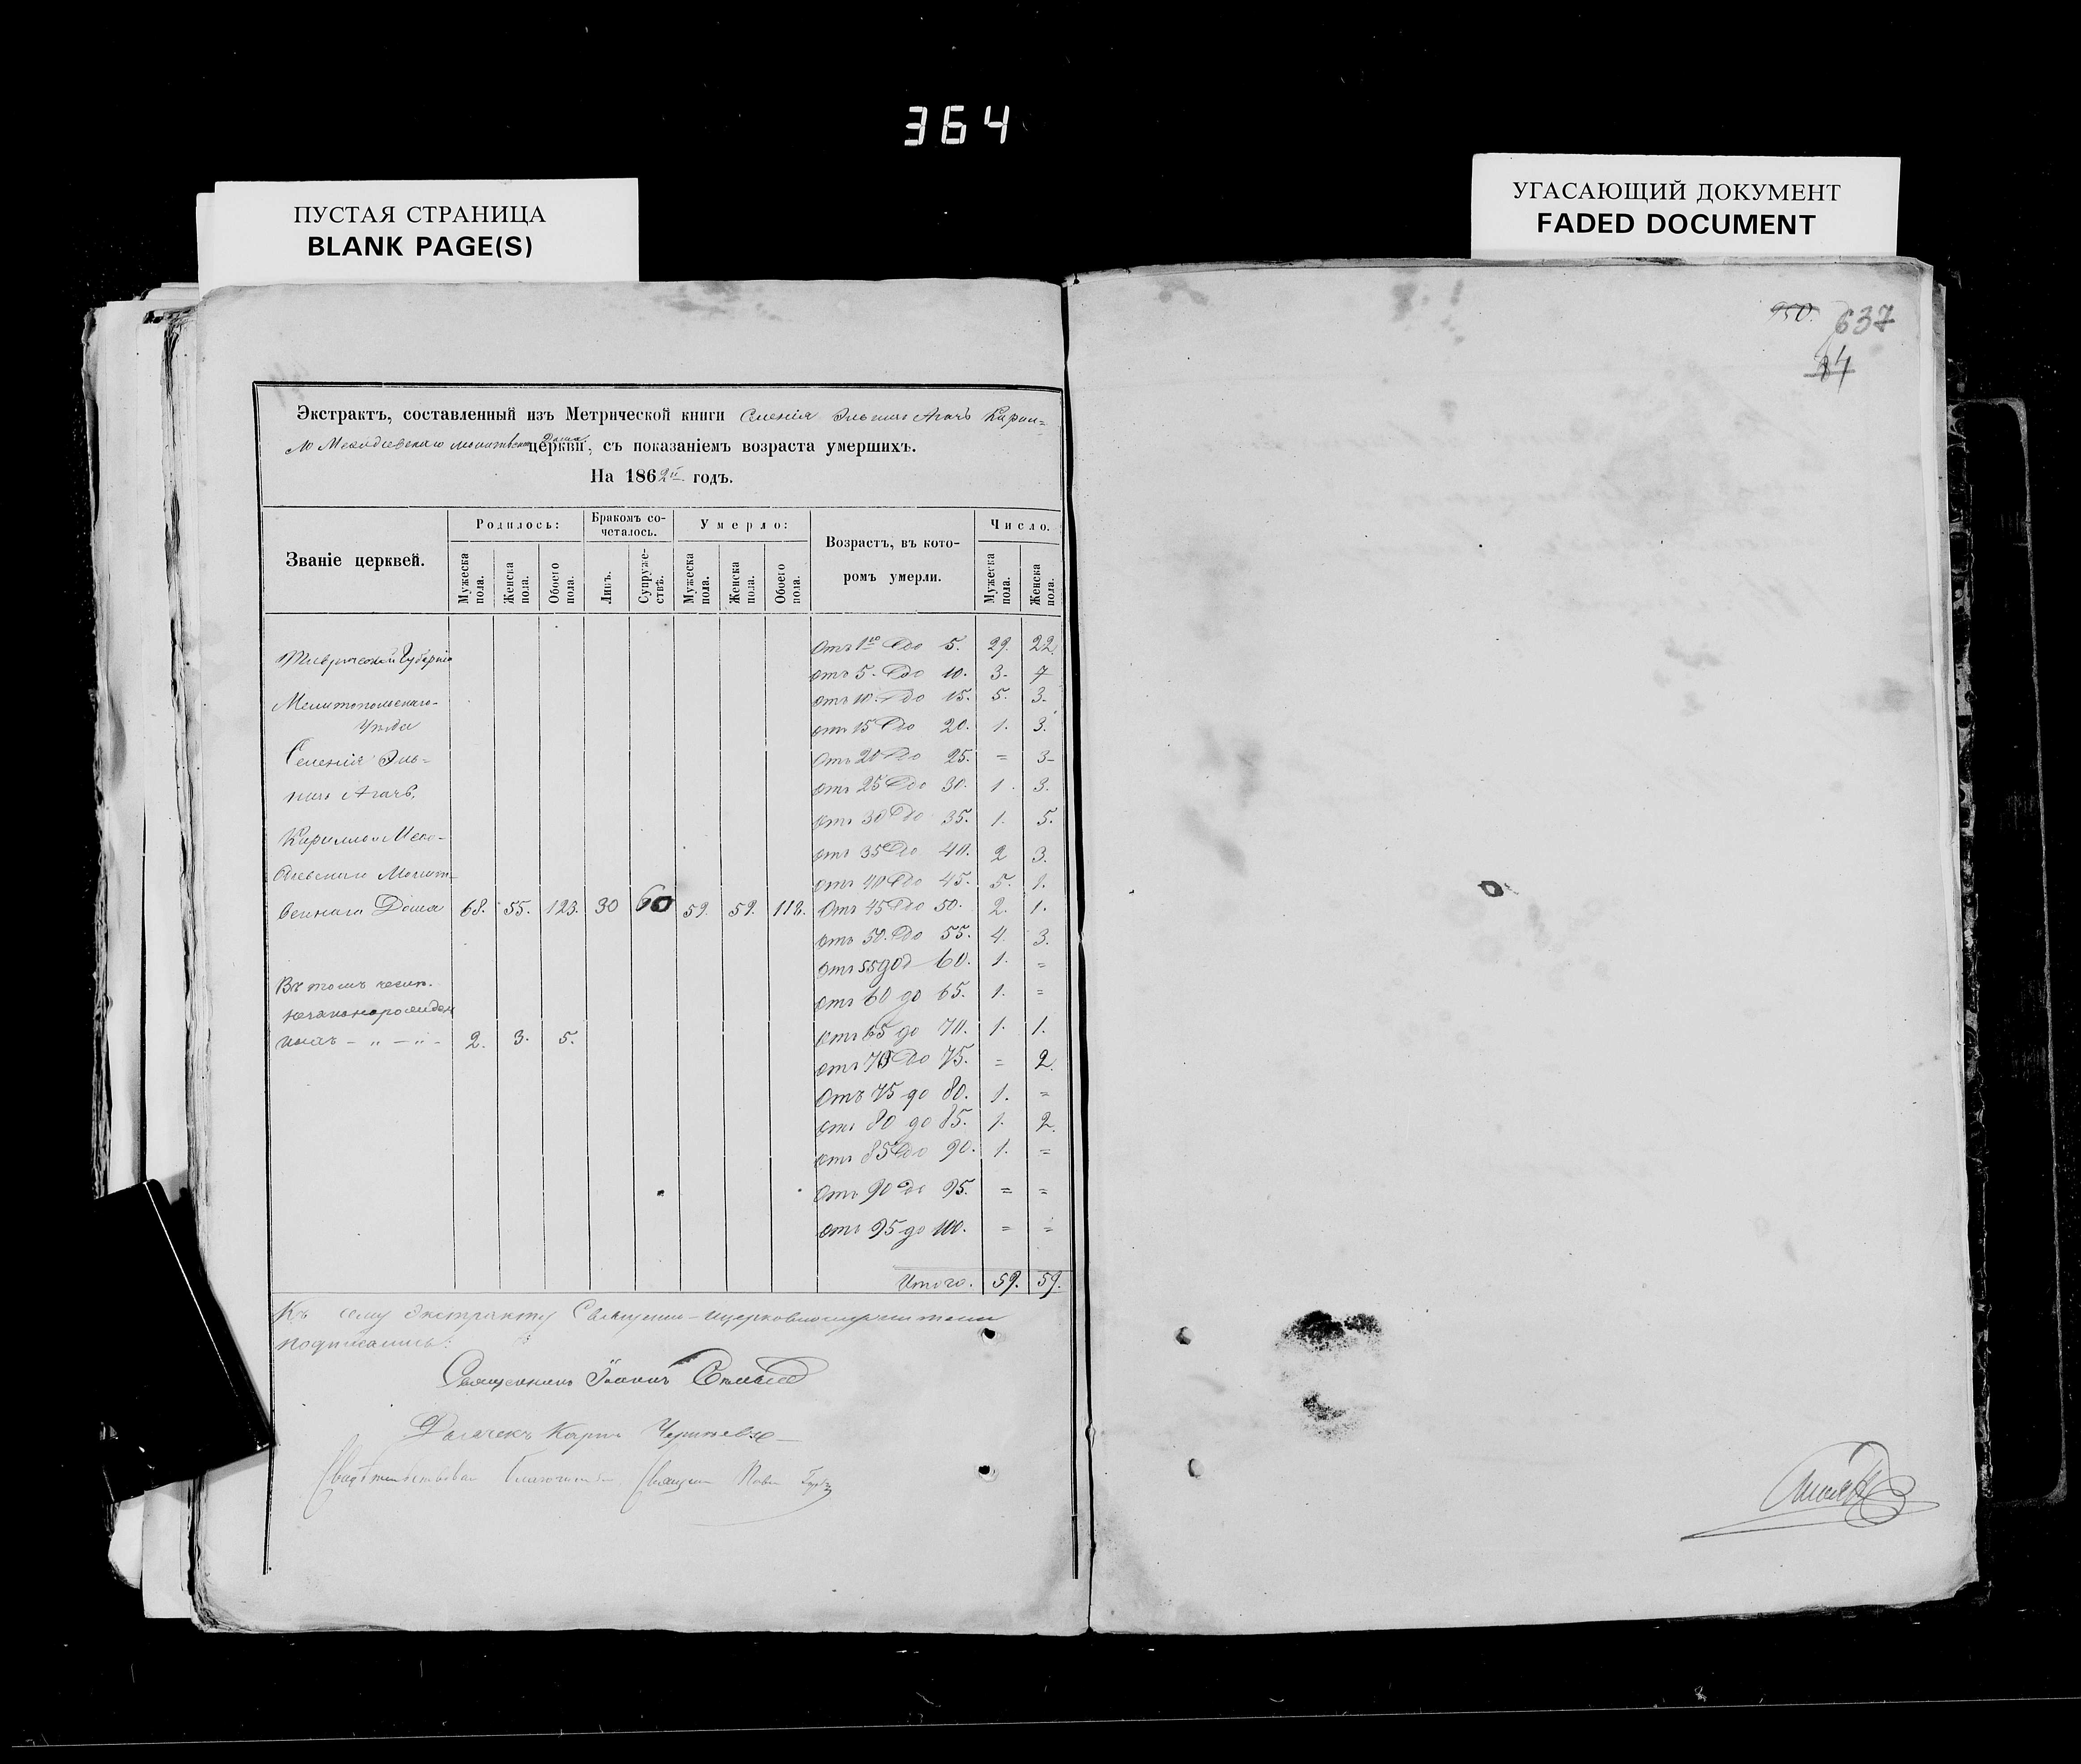 364
ПУСТАЯ СТРАНИЦА
BLANK PAGE(S)
УГАСАЮЩИЙ ДОКУМЕНТ
FADED DOCUMENT
Экстрактъ, составленный изъ Метрической книги Селенія Агачъ Кирил=
ло Меѳодіевскаго молитвен Дома церкви, съ показаніемъ возраста умершихъ.
На 1862й годъ.
Званіе церквей.
Родилось:
Бракомъ со-
четалось.
Умерло:
Возрастъ, въ кото-
ромъ умерли.
Число.
Мужеска пола.
Женска пола.
Обоего пола.
Лицъ.
Супруже-
ствъ.
Мужеска пола.
Женска пола.
Обоего пола.
Мужеска пола.
Женска пола.
Таврической Губерніи
отъ 1го до 5. 29. 22.
отъ 5. до 10. 3. 7
Мелитопольскаго
отъ 10. до 15. 5. 3.
Уѣзда
отъ 15 до 20. 1. 3.
Селенія Эль=
отъ 20 до 25. = 3
Агачъ,
отъ 25 до 30. 1. 3.
отъ 30 до 35. 1. 5.
Кирилло Меѳо-
отъ 35 до 40. 2 3.
діевскаго Молит-
отъ 40 до 45. 5. 1.
веннаго Дома 68. 55. 123. 30 60 59. 59. 118. Отъ 45 до 50. 2. 1.
отъ 50. до 55. 4. 3.
отъ 55 до 60. 1. =
Въ томъ числѣ
незаконорожден
отъ 60 до 65. 1. =
ныхъ - " - " - 2. 3. 5.
отъ 65 до 70. 1. 1.
отъ 70 до 75. = 2.
Отъ 75 до 80. 1. =
отъ 80 до 85. 1. 2.
отъ 85 до 90. 1. =
отъ 90 до 95. = =
отъ 95 до 100. = =
Итого. 59. 59.
Къ сему экстракту Священно-церковнослужители
подписались:
Священникъ Іоаннъ
Дьячекъ Карпъ
Свидѣтельствовалъ Благочинный Священ Павелъ
950. 637
84